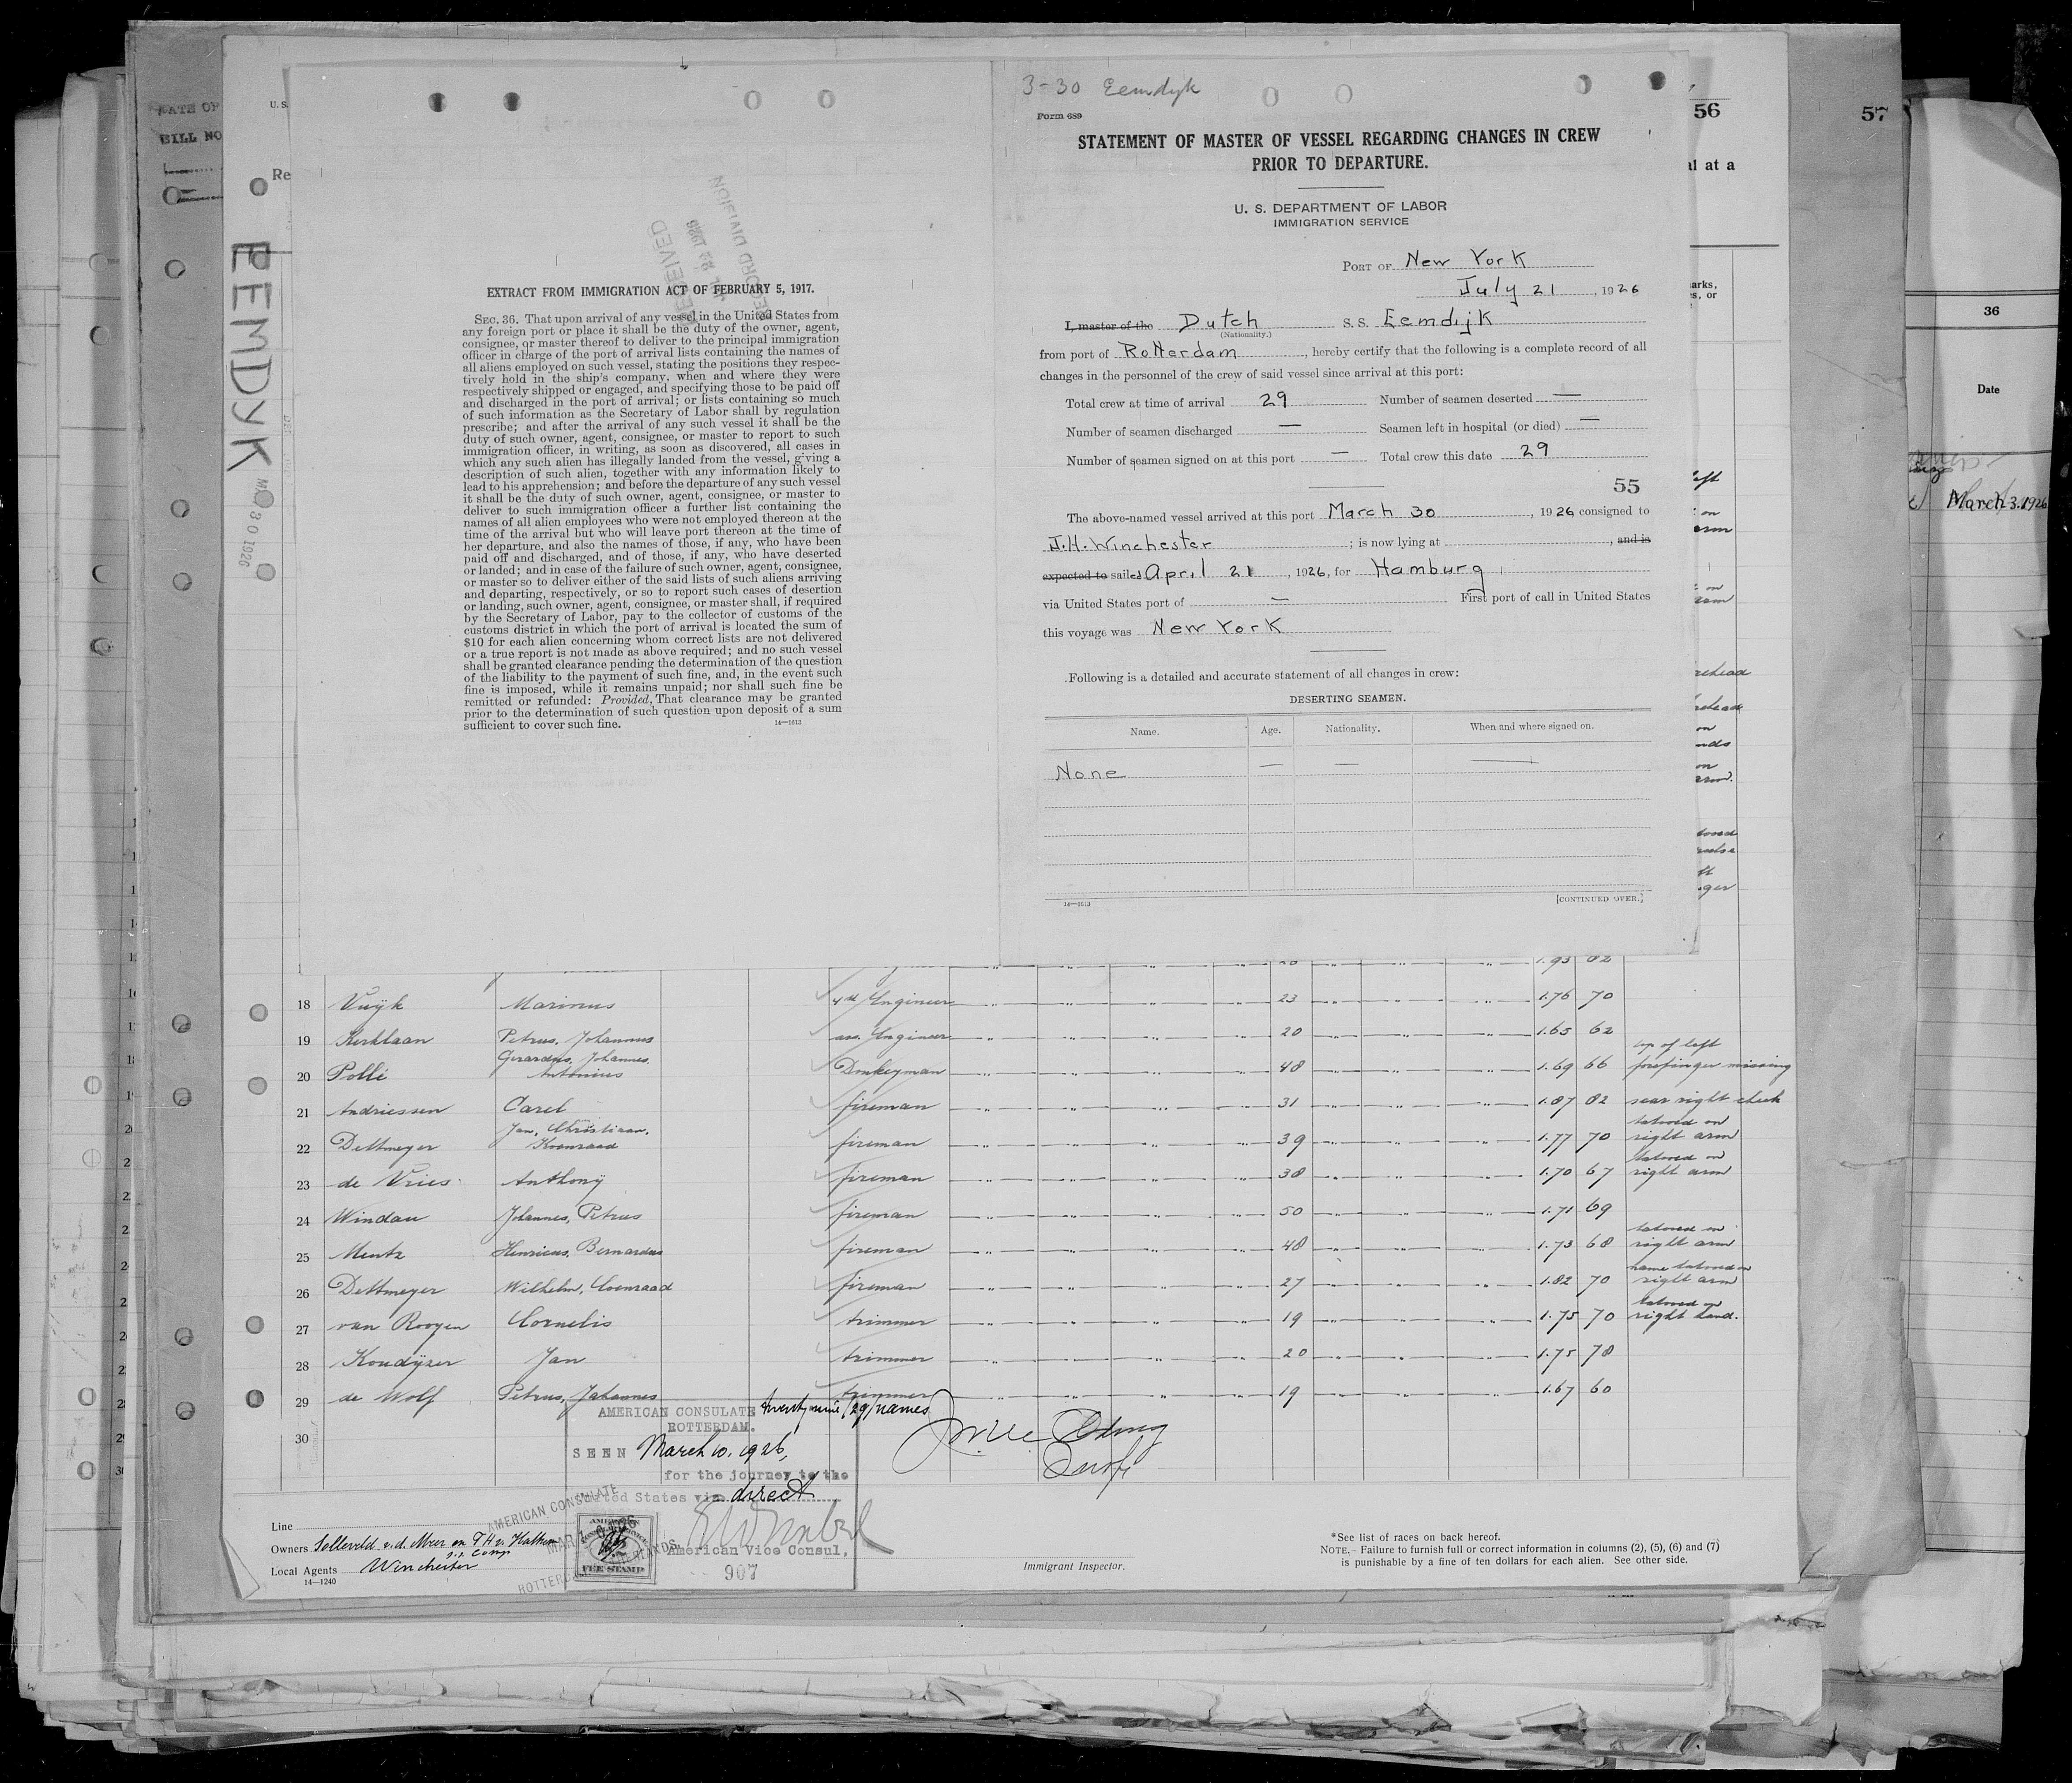 DATE OF
BILL NO
U. S.
Re
EEMDYK
MAR 30 1926
RECEIVED
RECORD DIVISION
EXTRACT FROM IMMIGRATION ACT OF FEBRUARY 5, 1917.
SEC. 36. That upon arrival of any vessel in the United States from
any foreign port or place it shall be the duty of the owner, agent,
consignee, or master thereof to deliver to the principal immigration
officer in charge of the port of arrival lists containing the names of
all aliens employed on such vessel, stating the positions they respec-
tively hold in the ship's company, when and where they were
respectively shipped or engaged, and specifying those to be paid off
and discharged in the port of arrival; or lists containing so much
of such information as the Secretary of Labor shall by regulation
prescribe; and after the arrival of any such vessel it shall be the
duty of such owner, agent, consignee, or master to report to such
immigration officer, in writing, as soon as discovered, all cases in
which any such alien has illegally landed from the vessel, giving a
description of such alien, together with any information likely to
lead to his apprehension; and before the departure of any such vessel
it shall be the duty of such owner, agent, consignee, or master to
deliver to such immigration officer a further list containing the
names of all alien employees who were not employed thereon at the
time of the arrival but who will leave port thereon at the time of
her departure, and also the names of those, if any, who have been
paid off and discharged, and of those, if any, who have deserted
or landed; and in case of the failure of such owner, agent, consignee,
or master so to deliver either of the said lists of such aliens arriving
and departing, respectively, or so to report such cases of desertion
or landing, such owner, agent, consignee, or master shall, if required
by the Secretary of Labor, pay to the collector of customs of the
customs district in which the port of arrival is located the sum of
$10 for each alien concerning whom correct lists are not delivered
or a true report is not made as above required; and no such vessel
shall be granted clearance pending the determination of the question
of the liability to the payment of such fine, and, in the event such
fine is imposed, while it remains unpaid; nor shall such fine be
remitted or refunded: Provided, That clearance may be granted
prior to the determination of such question upon deposit of a sum
sufficient to cover such fine. 14—1613
3-30 Eemdyk
Form 689
STATEMENT OF MASTER OF VESSEL REGARDING CHANGES IN CREW
PRIOR TO DEPARTURE.
U. S. DEPARTMENT OF LABOR
IMMIGRATION SERVICE
PORT OF New York
July 21, 1926
I, master of the Dutch S.S. Eemdijk
(Nationality.)
from port of Rotterdam, hereby certify that the following is a complete record of all
changes in the personnel of the crew of said vessel since arrival at this port:
Total crew at time of arrival 29 Number of seamen deserted —
Number of seamen discharged — Seamen left in hospital (or died) —
Number of seamen signed on at this port — Total crew this date 29
55
The above-named vessel arrived at this port March 30, 1926 consigned to
J.H. Winchester; is now lying at , and is
expected to sailed April 21, 1926, for Hamburg
via United States port of — First port of call in United States
this voyage was New York
Following is a detailed and accurate statement of all changes in crew:
DESERTING SEAMEN.
Name. Age. Nationality. When and where signed on.
None — — —
14—1613 [CONTINUED OVER.]
56
al at a
57
36
Date
March 3. 1926
1.93 82
18 Vuÿk Marinus 4th Engineer 23 1.76 70
19 Kerklaan Petrus, Johannus ass. Engineer 20 1.65 62
20 Pollé Gerardus, Johannes, Antonius Donkeyman 48 1.69 66 top of left forefinger missing
21 Andriessen Carel fireman 31 1.87 82 scar right cheek
22 Dettmeyer Jan, Christiaan, Koenraad fireman 39 1.77 70 tatooed on right arm
23 de Vries Anthony fireman 38 1.70 67 tatooed on right arm
24 Windau Johannes, Petrus fireman 50 1.71 69
25 Mentz Henricus, Bernardus fireman 48 1.73 68 tatooed on right arm
26 Dettmeyer Wilhelm, Coenraad fireman 27 1.82 70 name tatooed on right arm
27 van Rooyen Cornelis trimmer 19 1.75 70 tatooed on right hand.
28 Koudÿzer Jan trimmer 20 1.75 78
29 de Wolf Petrus, Johannes trimmer 19 1.67 60
30
AMERICAN CONSULATE twenty nine /29/ names
ROTTERDAM.
SEEN March 10, 1926,
for the journey to the
United States via direct
American Vice Consul.
907
AMERICAN CONSULATE
FEE STAMP
Line
Owners Solleveld v.d. Meer en T H v. Hattum
Local Agents Winchester
14—1240
Immigrant Inspector.
*See list of races on back hereof.
NOTE.—Failure to furnish full or correct information in columns (2), (5), (6) and (7)
is punishable by a fine of ten dollars for each alien. See other side.